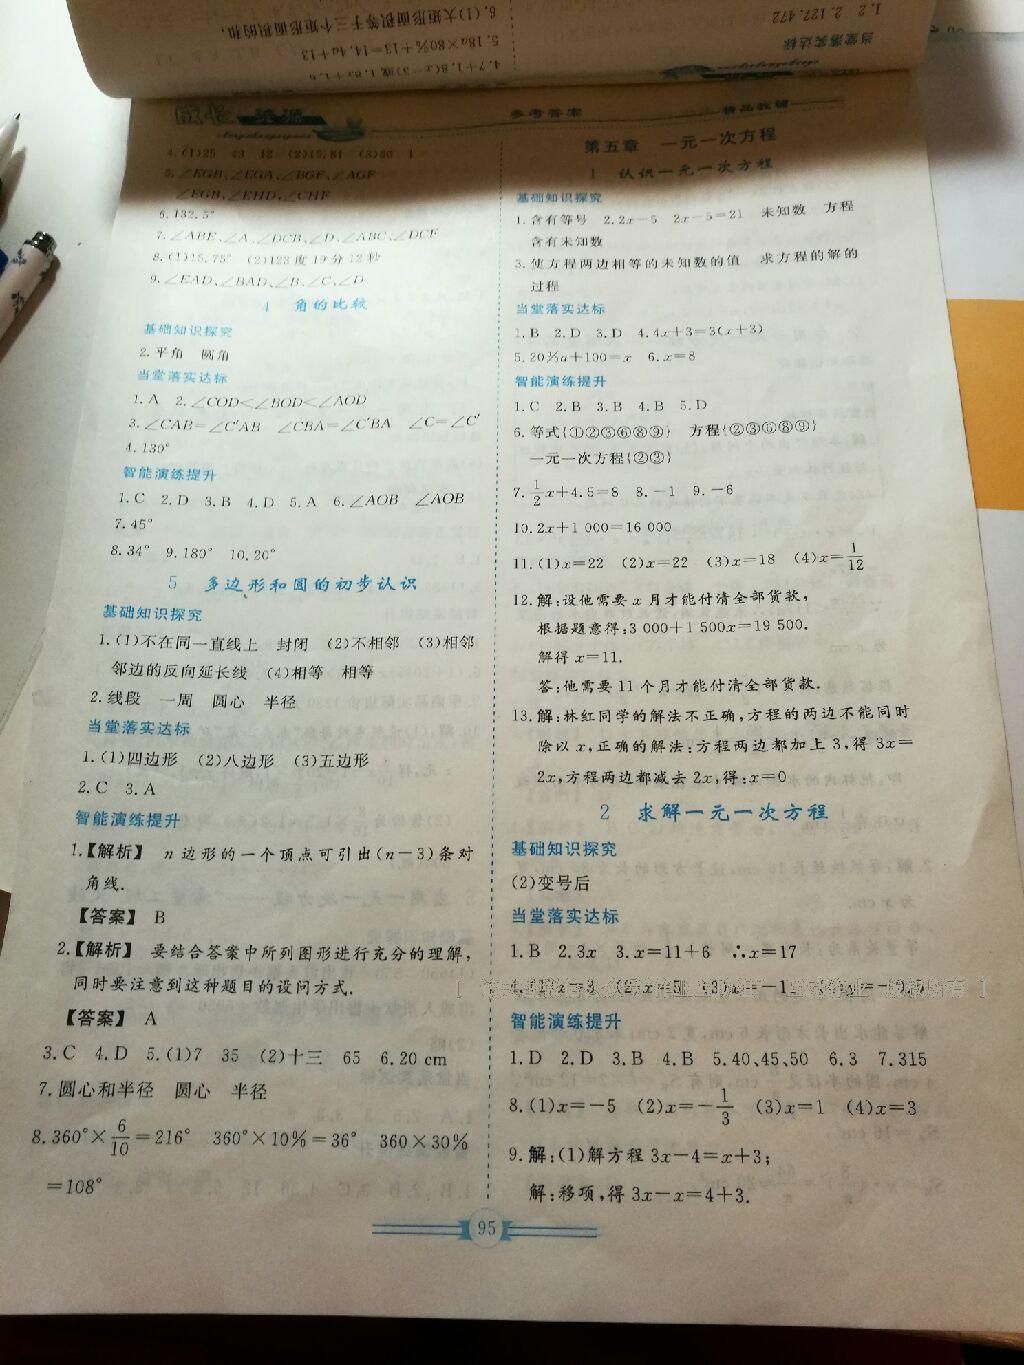 1.2 2.127.472
当堂落实达标
6.(1)大矩形面积等于三个矩形面积的和,
5.18a×80%+13=14.4a+13
参考答案
精品教辅
4.(1)25 43 12 (2)15.81 (3)60 1
5.∠EGB、∠EGA、∠BGF、∠AGF
∠EGB、∠EHD、∠CHF
6.132.5°
7.∠ABE、∠A、∠DCB、∠D、∠ABC、∠DCF
8.(1)15.75° (2)123度19分12秒
9.∠EAD、∠BAD、∠B、∠C、∠D
4 角的比较
基础知识探究
2.平角 圆角
当堂落实达标
1.A 2.∠COD<∠BOD<∠AOD
3.∠CAB=∠C'AB ∠CBA=∠C'BA ∠C=∠C'
4.130°
智能演练提升
1.C 2.D 3.B 4.D 5.A 6.∠AOB ∠AOB
7.45°
8.34° 9.180° 10.20°
5 多边形和圆的初步认识
基础知识探究
1.(1)不在同一直线上 封闭 (2)不相邻 (3)相邻
邻边的反向延长线 (4)相等 相等
2.线段 一周 圆心 半径
当堂落实达标
1.(1)四边形 (2)八边形 (3)五边形
2.C 3.A
智能演练提升
1.【解析】 n边形的一个顶点可引出(n-3)条对
角线.
【答案】 B
2.【解析】 要结合答案中所列图形进行充分的理解,
同时要注意到这种题目的设问方式.
【答案】 A
3.C 4.D 5.(1)7 35 (2)十三 65 6.20 cm
7.圆心和半径 圆心 半径
8.360°×6/10=216° 360°×10%=36° 360×30%
=108°
第五章 一元一次方程
1 认识一元一次方程
基础知识探究
1.含有等号 2.2x-5 2x-5=21 未知数 方程
含有未知数
3.使方程两边相等的未知数的值 求方程的解的
过程
当堂落实达标
1.B 2.D 3.D 4.4x+3=3(x+3)
5.20%a+100=x 6.x=8
智能演练提升
1.C 2.B 3.B 4.B 5.D
6.等式{①②③⑥⑧⑨} 方程{②③⑥⑧⑨}
一元一次方程{②③}
7.1/2x+4.5=8 8.-1 9.-6
10.2x+1 000=16 000
11.(1)x=22 (2)x=22 (3)x=18 (4)x=1/12
12.解:设他需要x月才能付清全部货款,
根据题意得:3 000+1 500x=19 500.
解得x=11.
答:他需要11个月才能付清全部货款.
13.解:林红同学的解法不正确,方程的两边不能同时
除以x,正确的解法:方程两边都加上3,得3x=
2x,方程两边都减去2x,得:x=0
2 求解一元一次方程
基础知识探究
(2)变号后
当堂落实达标
1.B 2.3x 3.x=11+6 ∴x=17
智能演练提升
1.D 2.D 3.B 4.B 5.40、45、50 6.3 7.315
8.(1)x=-5 (2)x=-1/3 (3)x=1 (4)x=3
9.解:(1)解方程3x-4=x+3;
解:移项,得3x-x=4+3.
95